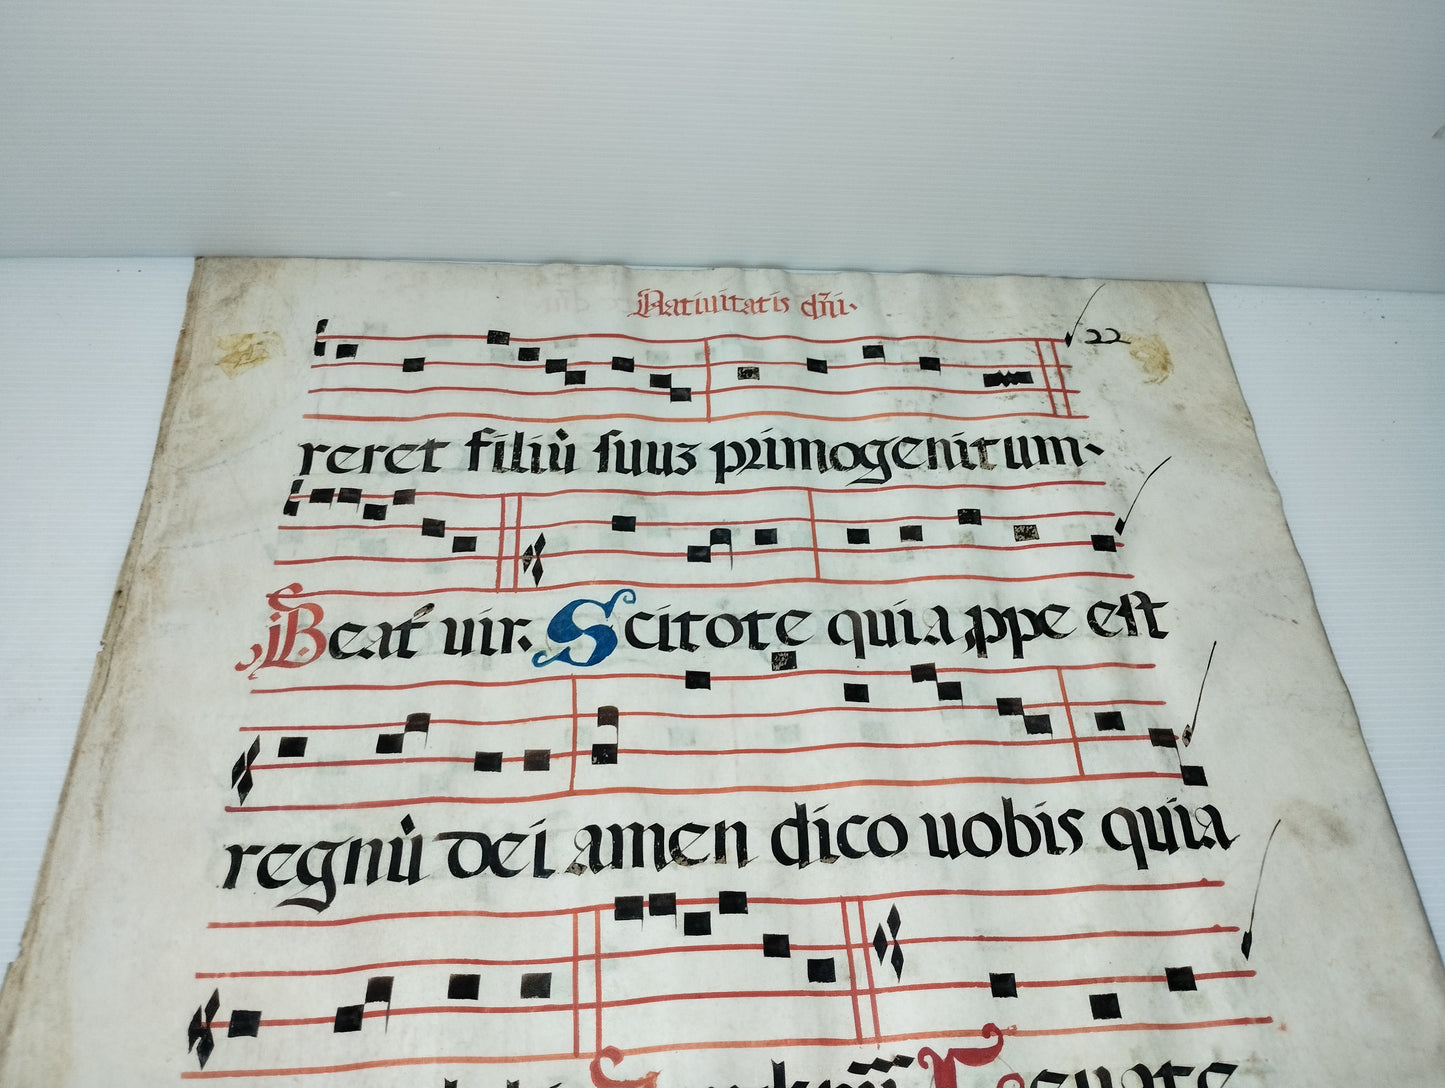 Natiuitatis dñi.
22
reret filiũ suuz primogenitum.
Beat' uir. Scitote quia ꝓpe est
regnũ dei amen dico uobis quia